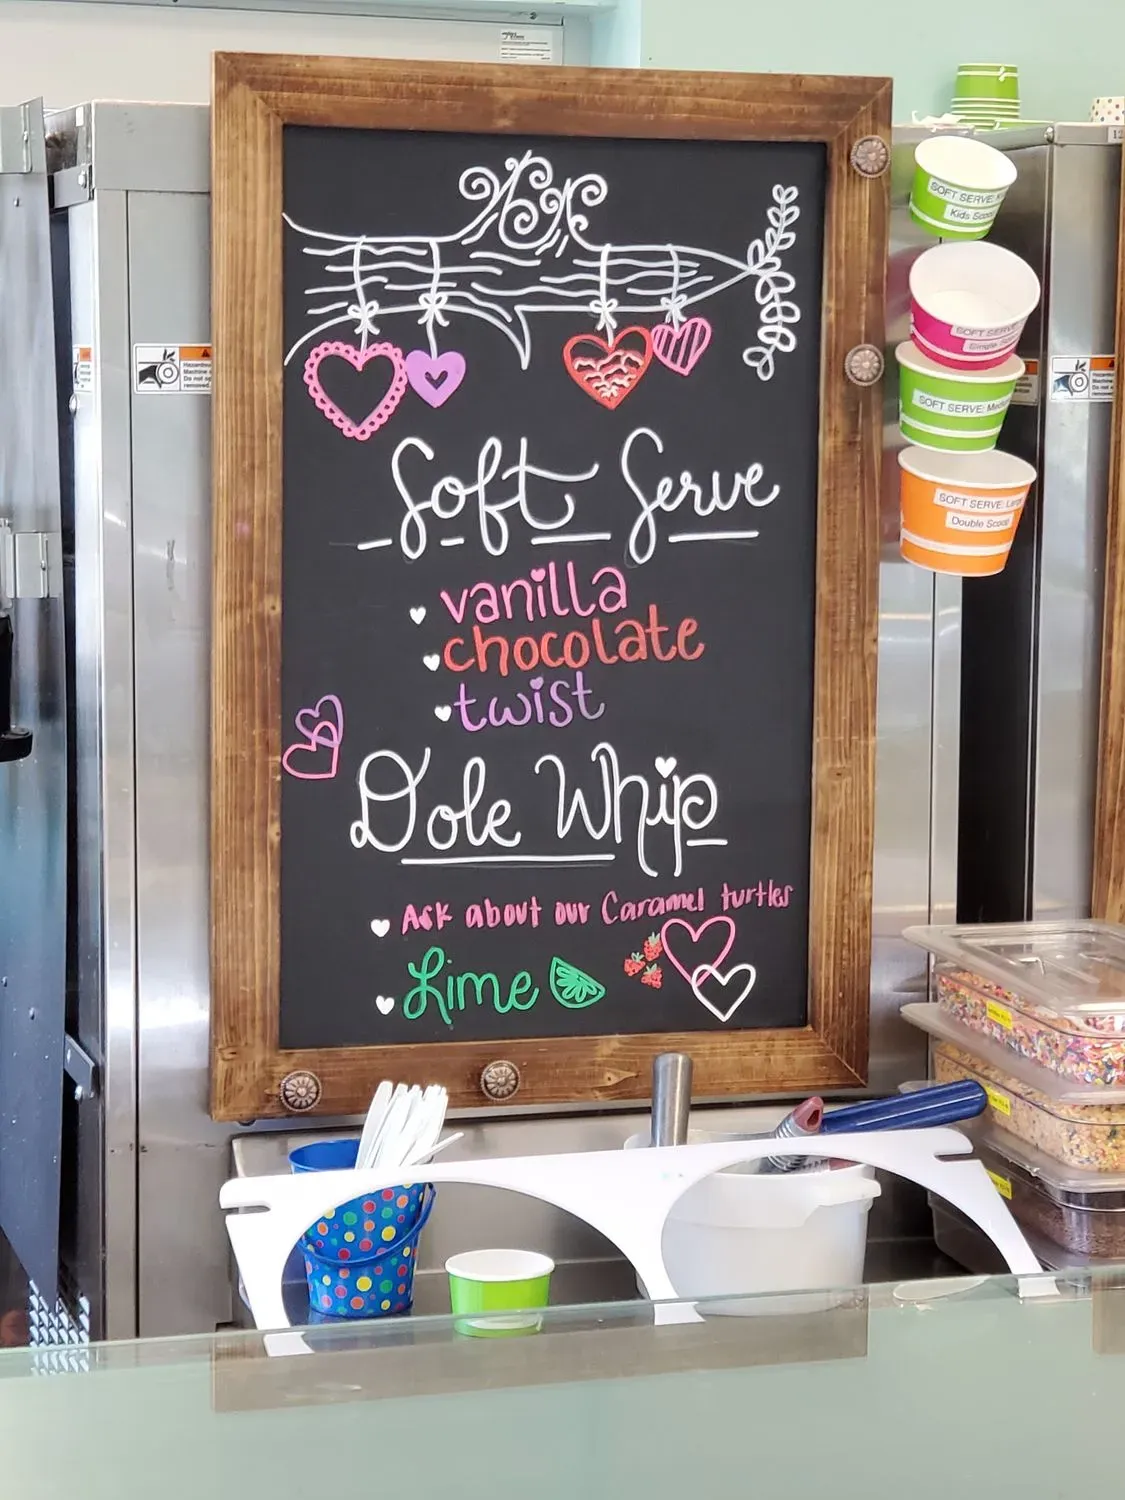 Soft Serve
vanilla
chocolate
twist
Dole Whip
Ask about our Caramel turtles
Lime
SOFT SERVE:
Kids Scoop
SOFT SERVE
SOFT SERVE:
SOFT SERVE: Large
Double Scoop